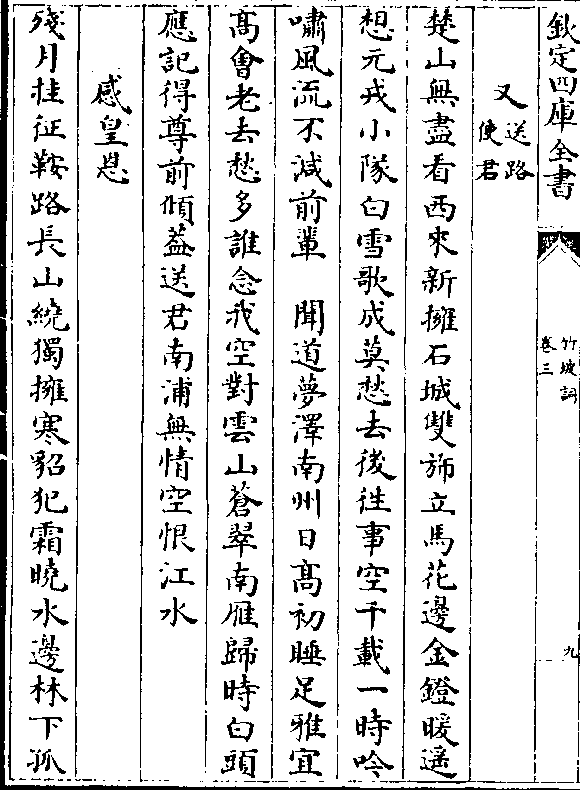 欽定四庫全書
竹坡詞
卷三
九
又送路使君
楚山無盡看西來新擁石城雙斾立馬花邊金鐙暖遥
想元戎小隊白雪歌成莫愁去後徃事空千載一時吟
嘯風流不減前輩　聞道夢澤南州日髙初睡足雅宜
髙會老去愁多誰念我空對雲山蒼翠南雁歸時白頭
應記得尊前傾葢送君南浦無情空恨江水
感皇恩
殘月挂征鞍路長山繞獨擁寒貂犯霜曉水邊林下孤